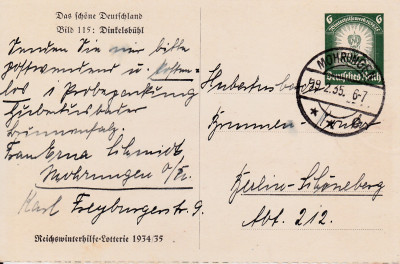 Das schöne Deutschland
Bild 115: Dinkelsbühl
Senden Sie mir bitte
postwendend u. kosten-
los 1 Probepackung
Hubertusbader
Brunnensalz.
Frau Erna Schmidt
Mohrungen O/Pr.
Karl Freyburgerstr. 9.
Reichswinterhilfe-Lotterie 1934/35
6
6
Deutsches Reich
MOHRUNGEN
2.35. 6-7
Hubertusbad
Brunnen
Berlin-Schöneberg
Abt. 212.